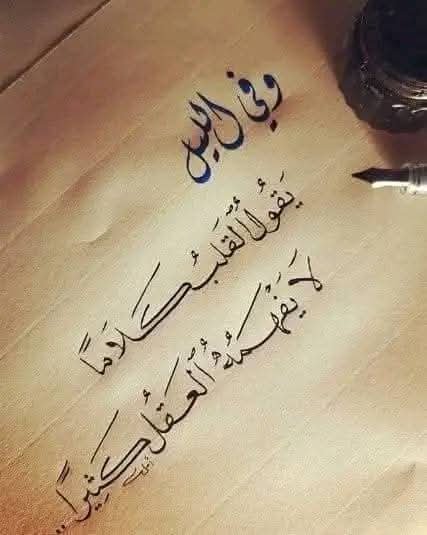 وفي الليل
يَقولُ القَلبُ كَلاَمًا
لاَ يَفْهَمُهُ العَقلُ كَثِيرًا..